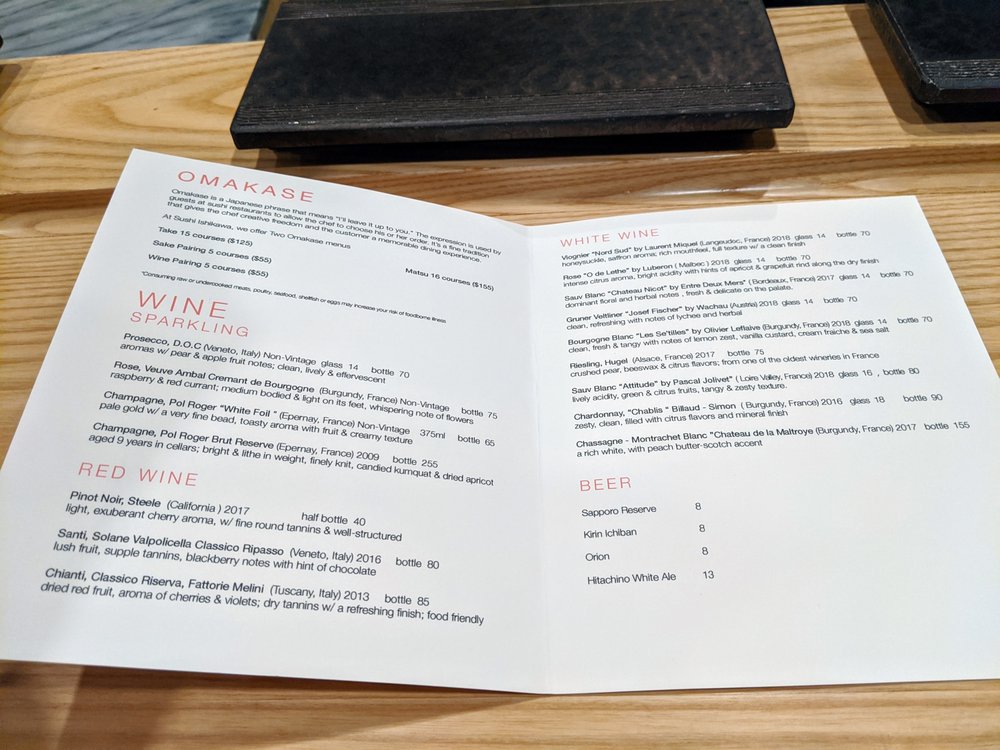 OMAKASE
Omakase is a Japanese phrase that means "I'll leave it up to you." The expression is used by
guests at sushi restaurants to allow the chef to choose his or her order. It's a fine tradition
that gives the chef creative freedom and the customer a memorable dining experience.
At Sushi Ishikawa, we offer Two Omakase menus
Take 15 courses ($125)
Matsu 16 courses ($155)
Sake Pairing 5 courses ($55)
Wine Pairing 5 courses ($55)
*Consuming raw or undercooked meats, poultry, seafood, shellfish or eggs may increase your risk of foodborne illness
WINE
SPARKLING
Prosecco, D.O.C (Veneto, Italy) Non-Vintage glass 14 bottle 70
aromas w/ pear & apple fruit notes; clean, lively & effervescent
Rose, Veuve Ambal Cremant de Bourgogne (Burgundy, France) Non-Vintage bottle 75
raspberry & red currant; medium bodied & light on its feet, whispering note of flowers
Champagne, Pol Roger "White Foil " (Epernay, France) Non-Vintage 375ml bottle 65
pale gold w/ a very fine bead, toasty aroma with fruit & creamy texture
Champagne, Pol Roger Brut Reserve (Epernay, France) 2009 bottle 255
aged 9 years in cellars; bright & lithe in weight, finely knit, candied kumquat & dried apricot
RED WINE
Pinot Noir, Steele (California ) 2017 half bottle 40
light, exuberant cherry aroma, w/ fine round tannins & well-structured
Santi, Solane Valpolicella Classico Ripasso (Veneto, Italy) 2016 bottle 80
lush fruit, supple tannins, blackberry notes with hint of chocolate
Chianti, Classico Riserva, Fattorie Melini (Tuscany, Italy) 2013 bottle 85
dried red fruit, aroma of cherries & violets; dry tannins w/ a refreshing finish; food friendly
WHITE WINE
Viognier "Nord Sud" by Laurent Miquel (Langeudoc, France) 2018 glass 14 bottle 70
honeysuckle, saffron aroma; rich mouthfeel, full texture w/ a clean finish
Rose "O de Lethe" by Luberon ( Malbec ) 2018 glass 14 bottle 70
intense citrus aroma; bright acidity with hints of apricot & grapefruit rind along the dry finish
Sauv Blanc "Chateau Nicot" by Entre Deux Mers" ( Bordeaux, France) 2017 glass 14 bottle 70
dominant floral and herbal notes , fresh & delicate on the palate.
Gruner Veltliner "Josef Fischer" by Wachau (Austria) 2018 glass 14 bottle 70
clean, refreshing with notes of lychee and herbal
Bourgogne Blanc "Les Se'tilles" by Olivier Leflaive (Burgundy, France) 2018 glass 14 bottle 70
clean, fresh & tangy with notes of lemon zest, vanilla custard, cream fraiche & sea salt
Riesling, Hugel (Alsace, France) 2017 bottle 75
crushed pear, beeswax & citrus flavors; from one of the oldest wineries in France
Sauv Blanc "Attitude" by Pascal Jolivet" ( Loire Valley, France) 2018 glass 16 , bottle 80
lively acidity, green & citrus fruits, tangy & zesty texture.
Chardonnay, "Chablis " Billaud - Simon ( Burgundy, France) 2016 glass 18 bottle 90
zesty, clean, filled with citrus flavors and mineral finish
Chassagne - Montrachet Blanc "Chateau de la Maltroye (Burgundy, France) 2017 bottle 155
a rich white, with peach butter-scotch accent
BEER
Sapporo Reserve 8
Kirin Ichiban 8
Orion 8
Hitachino White Ale 13